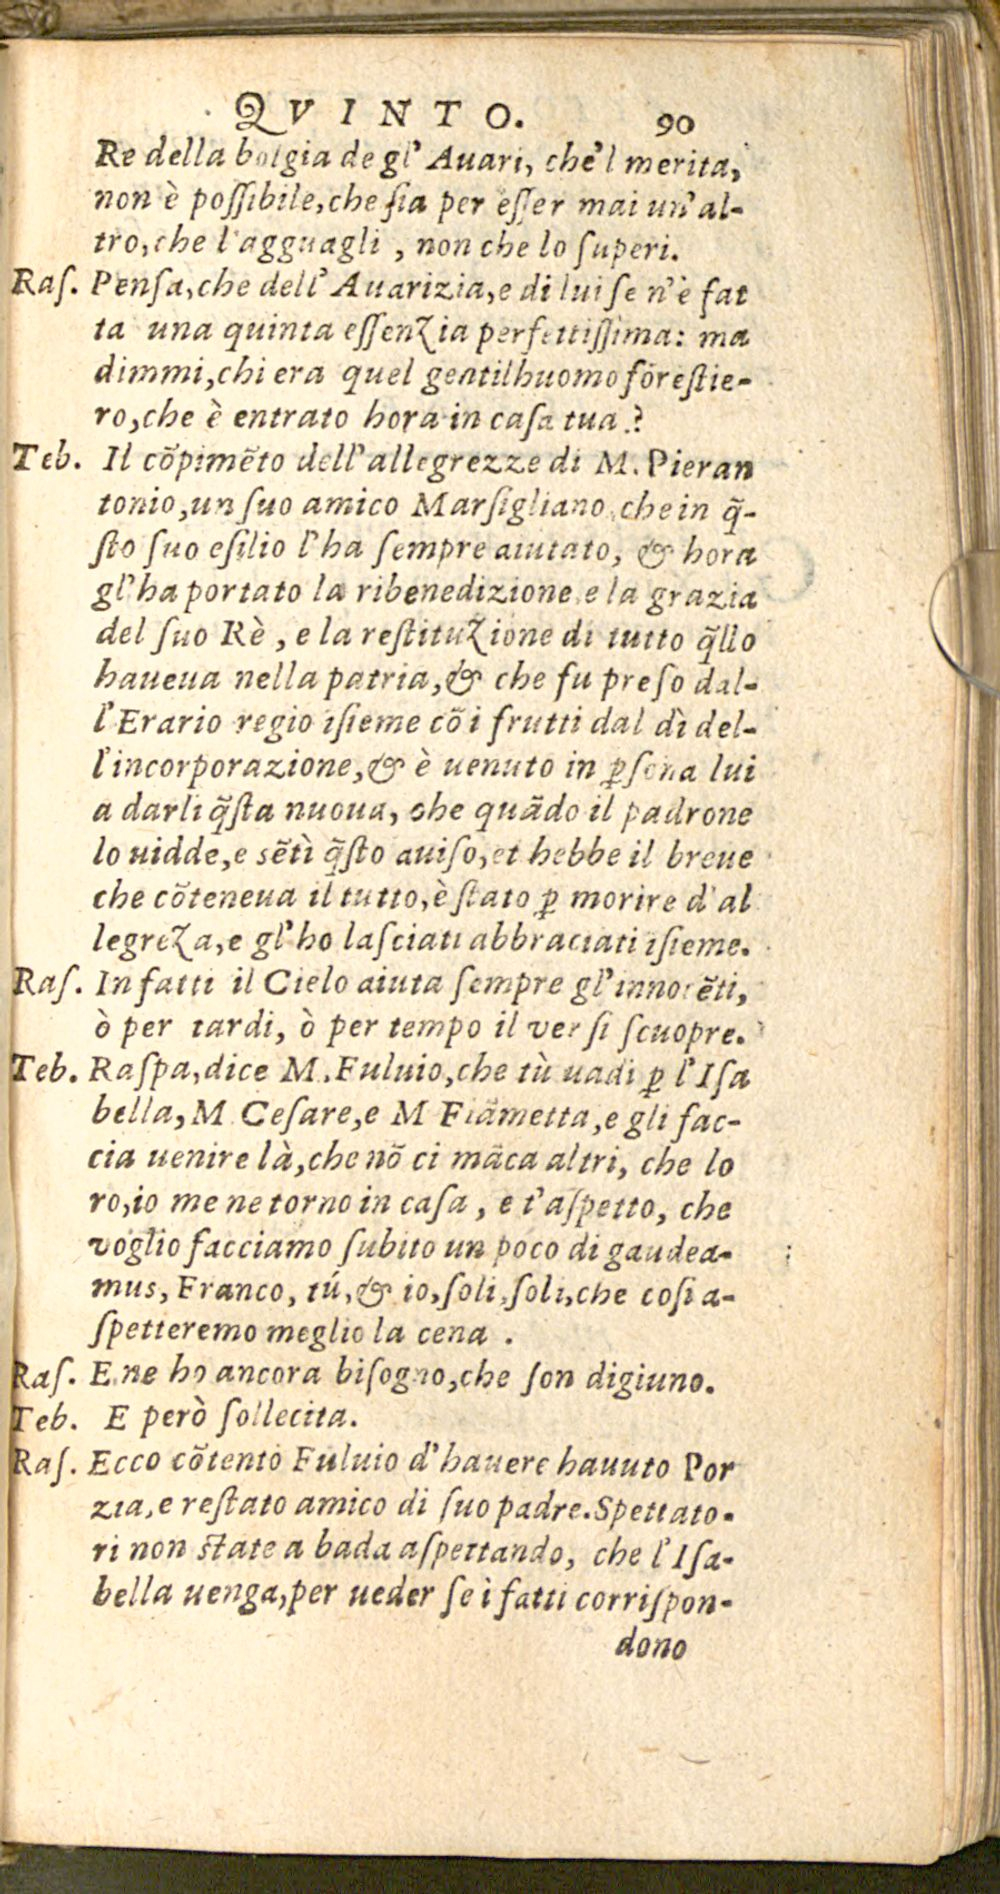 QVINTO. 90
Re della bolgia de gl' Auari, che'l merita,
non è poſſibile, che ſia per eſſer mai un'al-
tro, che l'agguagli, non che lo ſuperi.
Raſ. Penſa, che dell' Auarizia, e di lui ſe n'è fat
ta una quinta eſſenzia perfettiſſima: ma
dimmi, chi era quel gentilhuomo foreſtie-
ro, che è entrato hora in caſa tua?
Teb. Il cõpimẽto dell'allegrezze di M. Pieran
tonio, un ſuo amico Marſigliano, che in q̃-
ſto ſuo eſilio l'ha ſempre aiutato, & hora
gl'ha portato la ribenedizione, e la grazia
del ſuo Rè, e la reſtituzione di tutto q̃llo
haueua nella patria, & che fu preſo dal-
l'Erario regio iſieme cõ i frutti dal dì del-
l'incorporazione, & è uenuto in ꝑſona lui
a darli q̃ſta nuoua, che quãdo il padrone
lo uidde, e sẽtì q̃ſto auiſo, et hebbe il breue
che cõteneua il tutto, è ſtato ꝑ morire d'al
legreza, e gl'ho laſciati abbracciati iſieme.
Raſ. In fatti il Cielo aiuta ſempre gl'innocẽti,
ò per tardi, ò per tempo il ver ſi ſcuopre.
Teb. Raſpa, dice M. Fuluio, che tù uadi ꝑ l'Iſa
bella, M. Ceſare, e M Fiãmetta, e gli fac-
cia uenire là, che nõ ci mãca altri, che lo
ro, io me ne torno in caſa, e t'aſpetto, che
voglio facciamo ſubito un poco di gaudea-
mus, Franco, tú, & io, ſoli, ſoli, che coſi a-
ſpetteremo meglio la cena.
Raſ. E ne ho ancora biſogno, che ſon digiuno.
Teb. E però ſollecita.
Raſ. Ecco cõtento Fuluio d'hauere hauuto Por
zia, e reſtato amico di ſuo padre. Spettato-
ri non ſtate a bada aſpettando, che l'Iſa-
bella uenga, per ueder ſe i fatti corriſpon-
dono